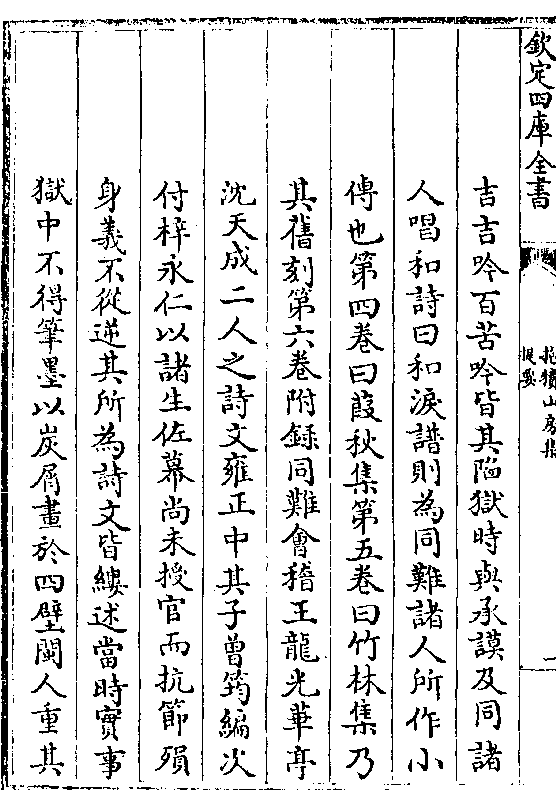 欽定四庫全書
抱犢山房集
提要
一
吉吉吟百苦吟皆其陷獄時與承謨及同諸
人唱和詩曰和淚譜則為同難諸人所作小
傳也第四卷曰葭秋集第五卷曰竹林集乃
其舊刻第六卷附録同難會稽王龍光華亭
沈天成二人之詩文雍正中其子曽筠編次
付梓永仁以諸生佐幕尚未授官而抗節殞
身義不從逆其所為詩文皆縷述當時實事
獄中不得筆墨以炭屑畫於四壁閩人重其